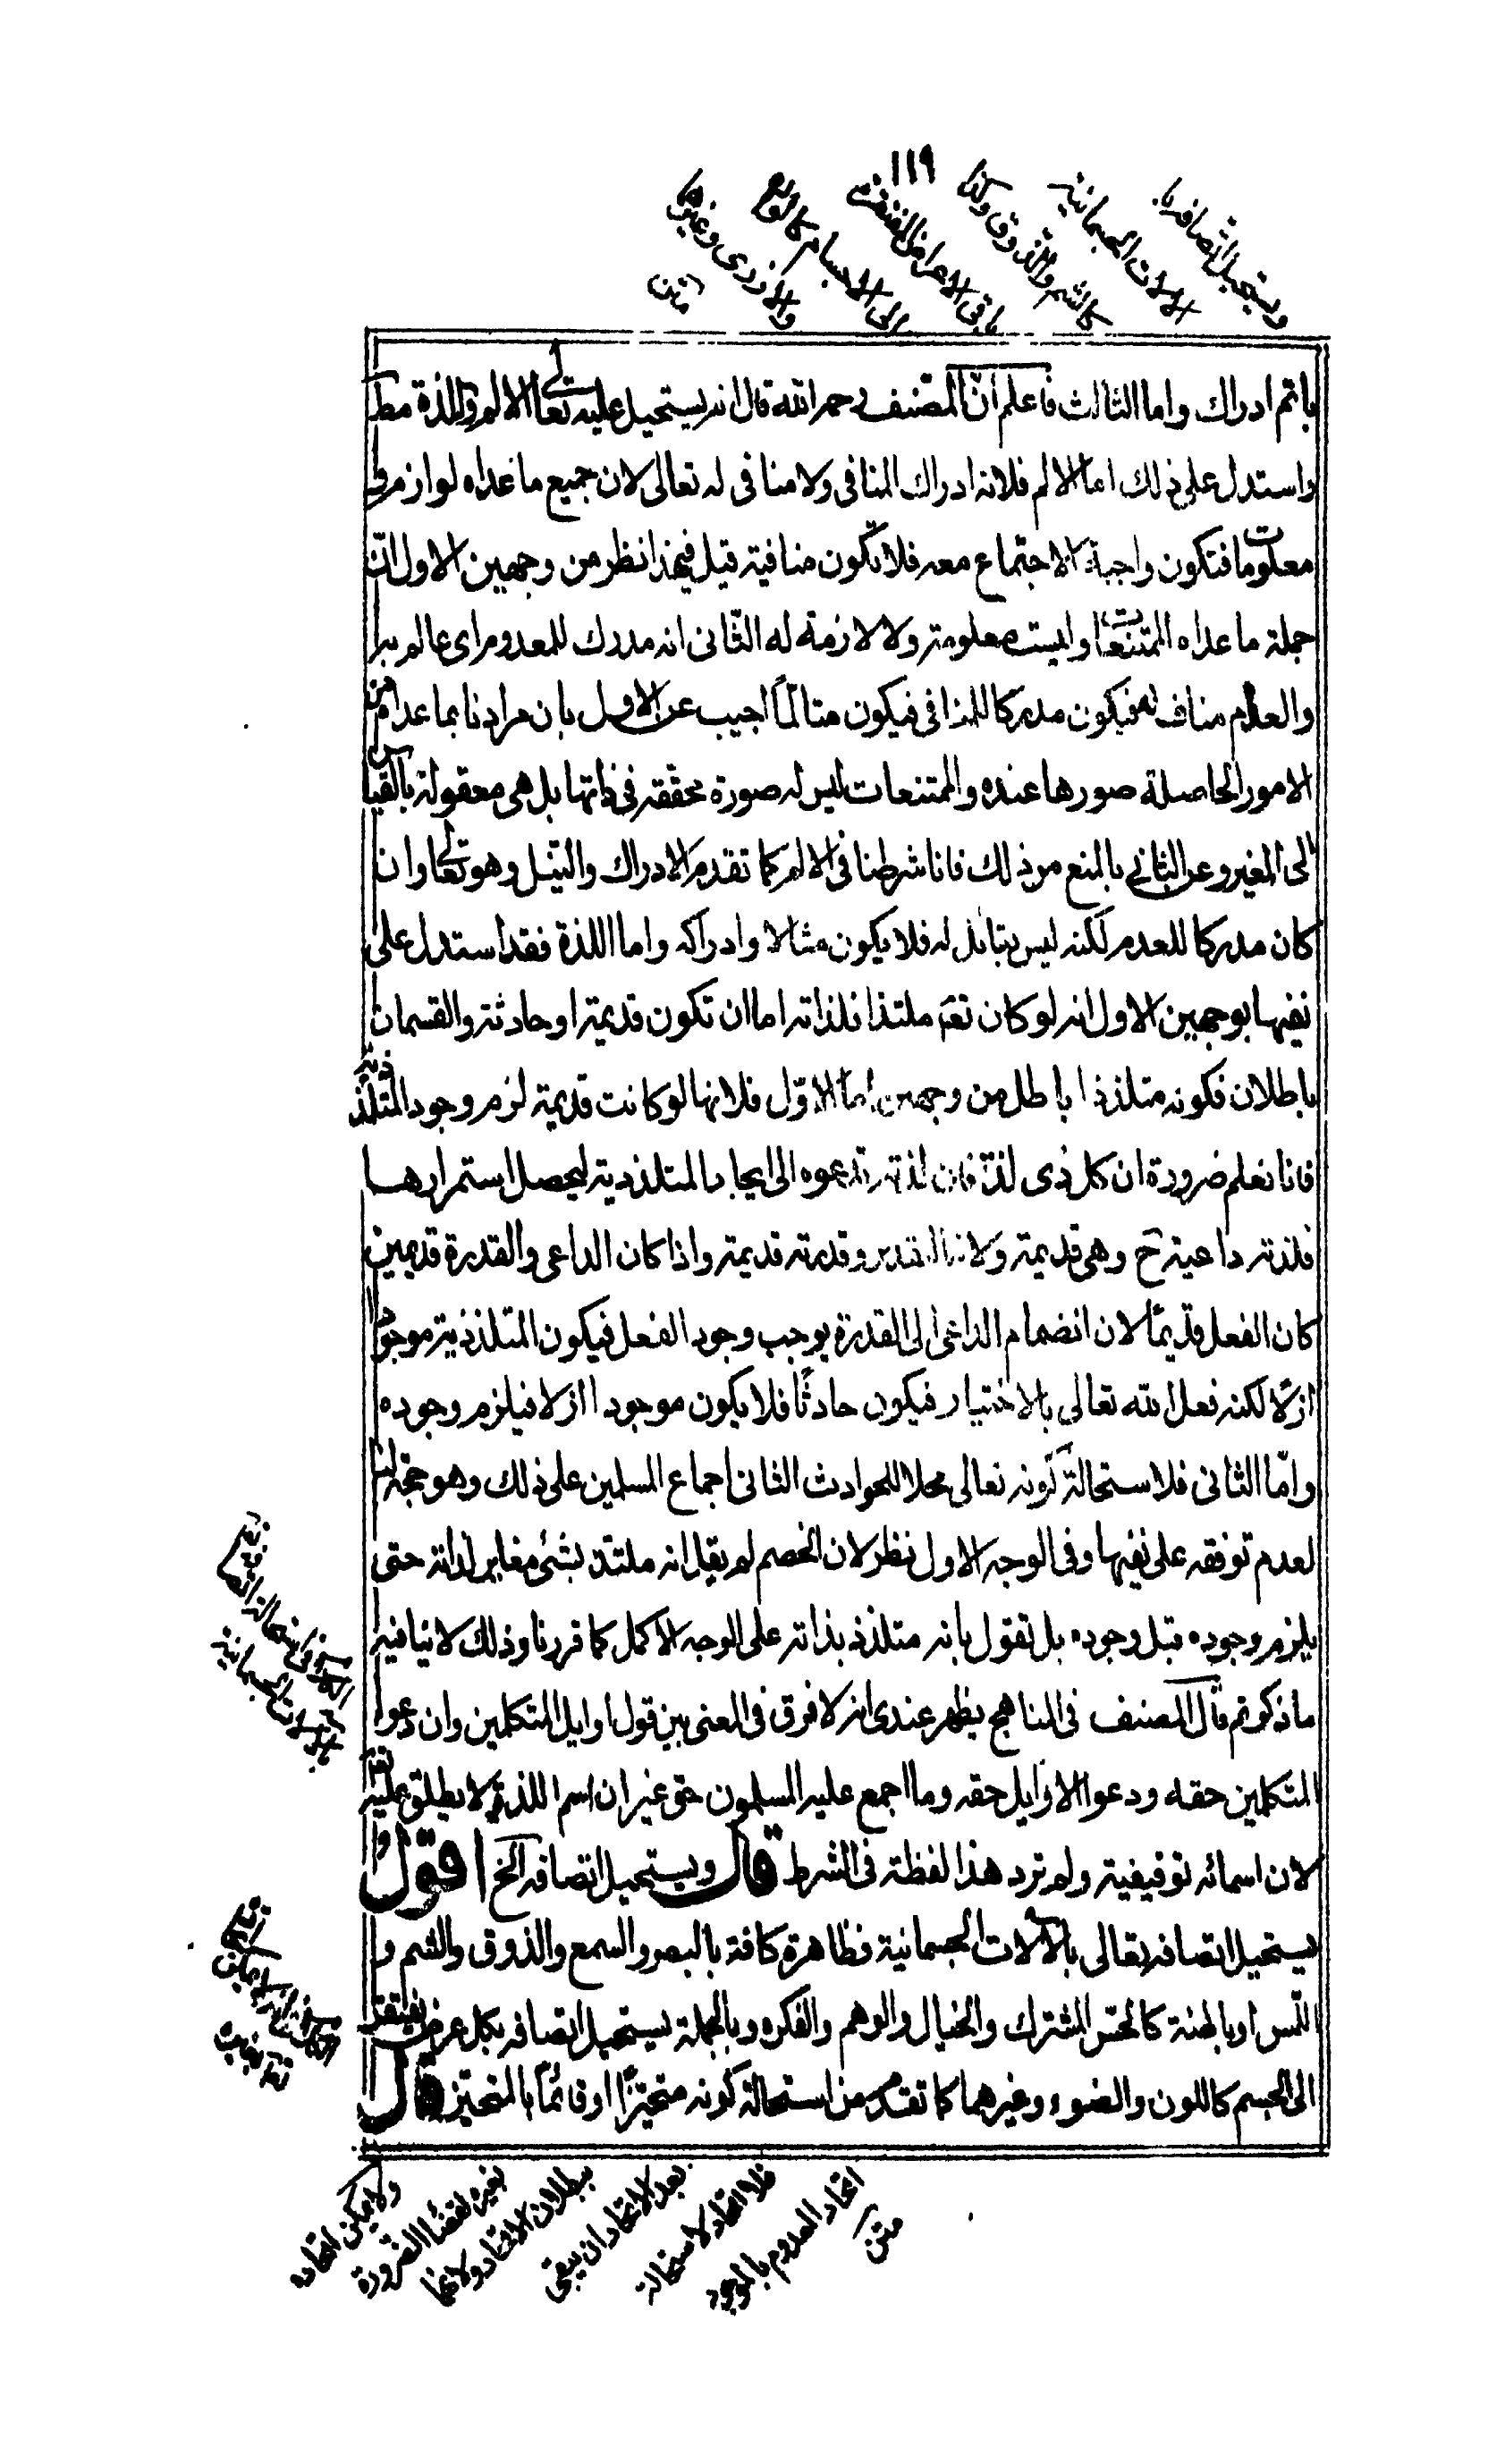 ١١٩
ويستحيل اتصافه با
لالات الجسمانية
كالشم والذوق وكذا
باقي الاعراض المفتقرة
الى الاجسام كالوانع
والاذرى وغيرها
متن
باتم ادراك واما الثالث فاعلم انّ المصنف رحمه الله قال انه يستحيل عليه تعالى الالم واللذة مط
واستدل على ذلك اما الالم فلانه ادراك المنافى ولا منافى له تعالى لان جميع ما عداه لوازم و
معلومات فتكون واجبة الاجتماع معه فلا تكون منافية قيل فيهذا نظر من وجهين الاول انّ
جملة ما عداه الممتنعات وليست معلومة ولا لازمة له الثّانى انه مدرك للمعدوم اى عالم به
والعدم مناف له فيكون مدركا للمنافى فيكون متالّماً اجيب عن الاول بان مرادنا بما عداه من
الامور الحاصلة صورها عنده والممتنعات ليس له صورة محققه فى ذاتها بل هى معقولة بالقياس
الى الغير وعن الثانى بالمنع من ذلك فانا شرطنا فى الالم كما تقدم الادراك والنيل وهو تعالى وان
كان مدركا للعدم لكنه ليس بنائل له فلا يكون مثالا وادراكه واما اللذة فقد استدل على
نفيها بوجهين الاول انه لو كان تعم ملتذا فلذاته اما ان تكون قديمة او حادثة والقسمان
باطلان فكونه متلذذا باطل من وجهين اما الاوّل فلانها لو كانت قديمة لزم وجود المتلذذية
فانا نعلم ضرورة ان كل ذى لذة فان لذته تدعوه الى ايجاد المتلذذية ليحصل استمرارها
فلذته داعية ح وهى قديمة ولانه القدير وقدرته قديمة واذا كان الداعى والقدرة قديمين
كان الفعل قديماً لان انضمام الداعى الى القدرة يوجب وجود الفعل فيكون المتلذذية موجوداً
ازلاً لكنه فعل الله تعالى بالاختيار فيكون حادثًا فلا يكون موجودا ازلا فيلزم وجوده
وامّا الثانى فلاستحالة كونه تعالى محلا للحوادث الثانى اجماع المسلمين على ذلك وهو حجة لنا
لعدم توقفه على نفيها وفى الوجه الاول نظر لان الخصم لم يقل انه ملتذ بشئ مغاير لذاته حتى
يلزم وجوده قبل وجوده بل نقول بانه متلذذ بذاته على الوجه الاكمل كما قررنا وذلك لا ينافيه
ما ذكرتم قال المصنف فى المناهج يظهر عندى انه لا فرق فى المعنى بين قول اوايل المتكلمين وان دعوا
المتكلمين حقه ودعوا الاوايل حقه وما اجمع عليه المسلمون حق غير ان اسم اللذة لا يطلق عليه تعالى
لان اسمائه توقيفية ولم ترد هذا لفظة فى الشرط قال ويستحيل اتصافه الخ اقول و
يستحيل اتصافه تعالى بالالات الجسمانية فظاهرة كافة بالبصر والسمع والذوق والشم و
اللّمس او بالهنة كالحسّ المشترك والخيال والوهم والفكره وبالجملة يستحيل اتصافه بكل عرض يفتقر
الى الجسم كاللون والضوء وغيرهما كما تقدم من استحالة كونه متحيّزاً او قائماً بالمتحيّز قال
استحالة اتصافه
بالالات الجسمانية
ولا يمكن اتحاده
بغيره لقضاء الضرورة
ببطلان الاتحاد ولانهما
بعد الاتحاد ان بقى
فلا اتحاد لاستحالة
اتحاد المعدوم بالموجود
متن